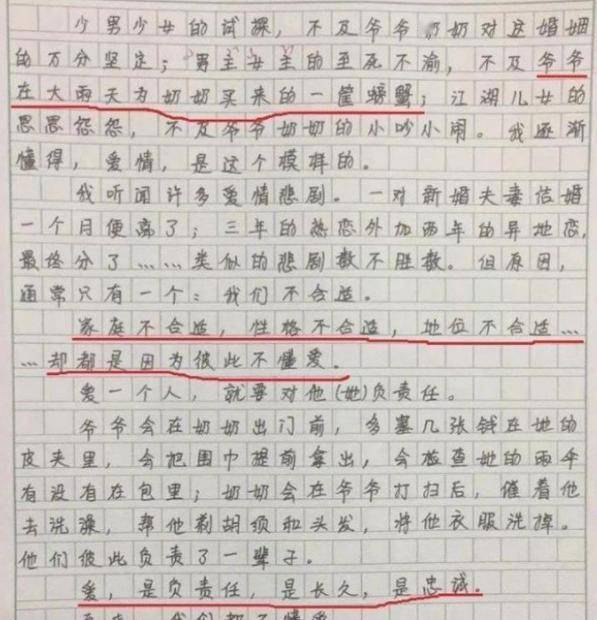 少男少女的试探，不及爷爷奶奶对这婚姻
的万分坚定；男主女主的至死不渝，不及爷爷
在大雨天为奶奶买来的一筐螃蟹；江湖儿女的
恩恩怨怨，不及爷爷奶奶的小吵小闹。我逐渐
懂得，爱情，是这个模样的。
我听闻许多爱情悲剧。一对新婚夫妻结婚
一个月便离了；三年的热恋外加两年的异地恋，
最终分了……类似的悲剧数不胜数。但原因，
通常只有一个：我们不合适。
家庭不合适，性格不合适，地位不合适…
…却都是因为彼此不懂爱。
爱一个人，就要对他(她)负责任。
爷爷会在奶奶出门前，多塞几张钱在她的
皮夹里，会把围巾提前拿出，会检查她的雨伞
有没有在包里；奶奶会在爷爷打扫后，催着他
去洗澡，帮他剃胡须和头发，将他衣服洗掉。
他们彼此负责了一辈子。
爱，是负责任，是长久，是忠诚。